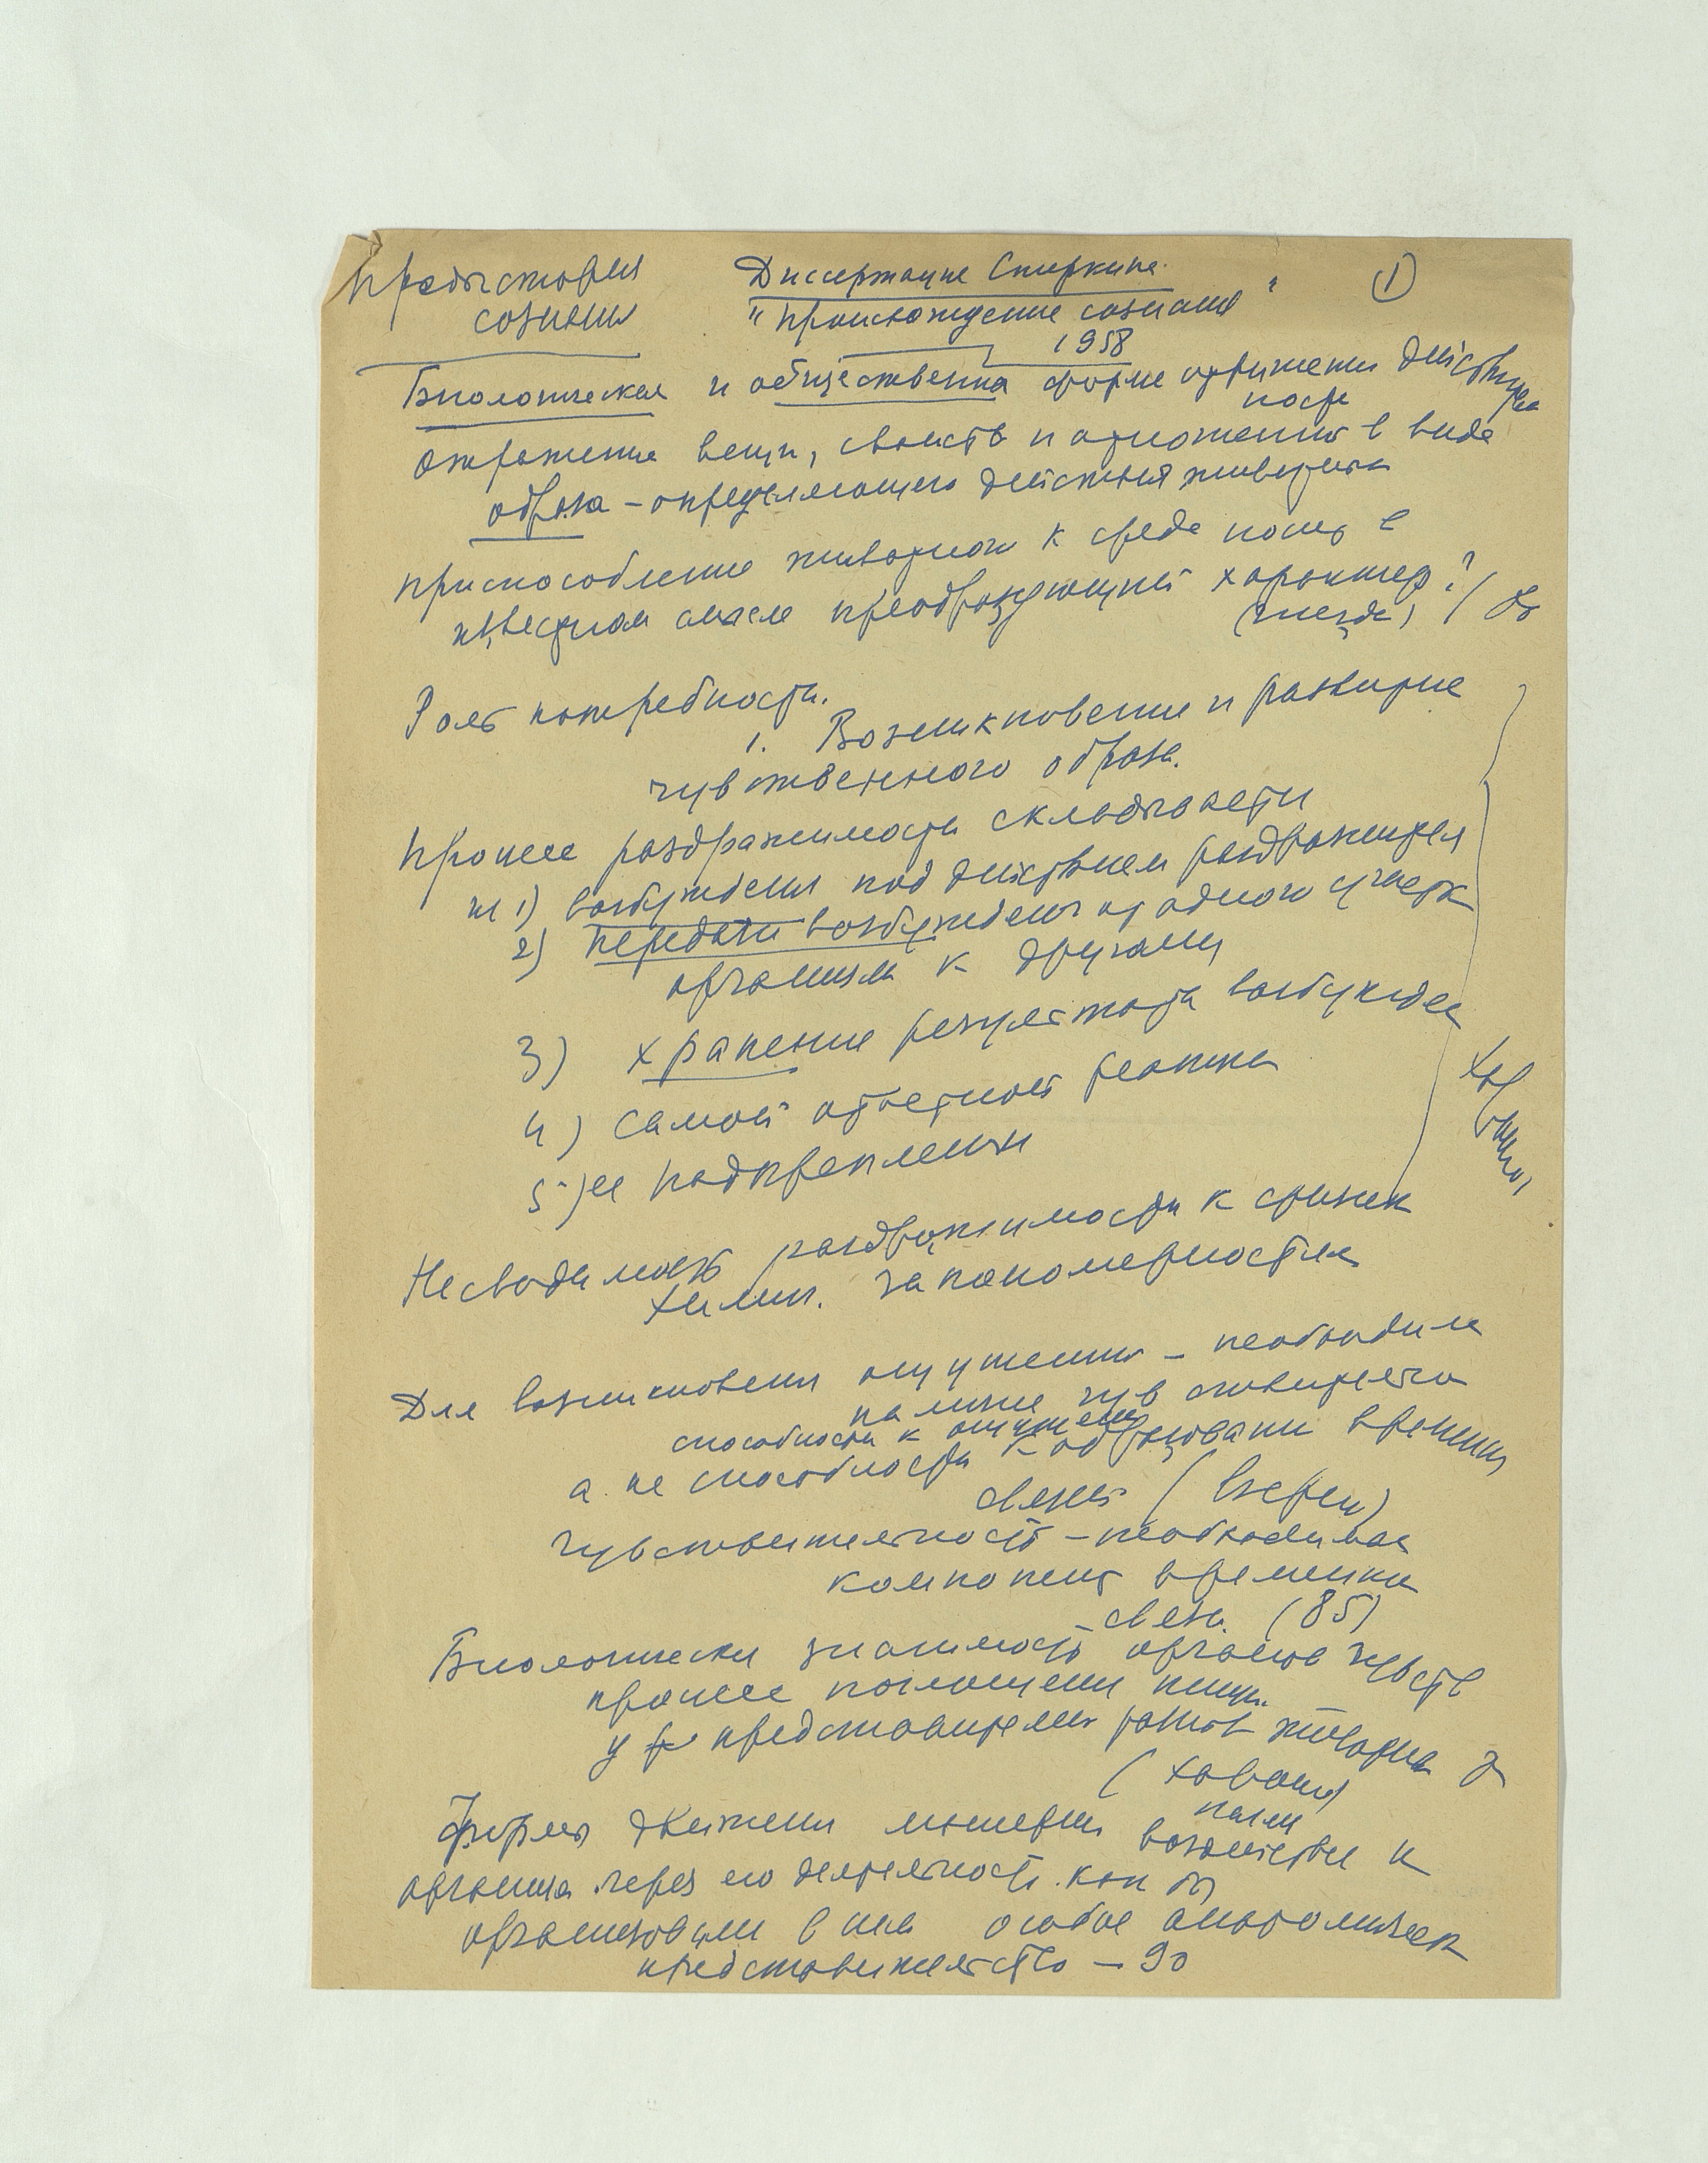 Предыстория
сознания
Диссертация Спиркина
"Происхождение сознания"
1958
①
Биологическая и общественная форма отражения действит
отражение вещи, свойств и отношений в виде
образа – определяющего действия животных
приспособление животного к среде носит в
известном смысле преобразующий характер?
(гнезда)
Роль потребности.
1. Возникновение и развитие
чувственного образа.
Процесс раздражимости складывается
из 1) возбуждения под действием раздражителя
2) передачи возбуждения от одного участк
организма к другому
3) хранение результата возбужден
4) самой ответной реакции
5) ее подкрепления
Несводимость раздражимости к физическ
химич. закономерностям
Для возникновения ощущения – необходима
наличие чувствительно
способности к ощущению
а не способности к образованию временных
связей (
чувствительность – необходимая
компонент временной
связи. (85)
Биологически значимость органов чувств
процесс поглощения пищи
у представителей разных животных
Формы движения материи
воздействуя н
организм через его деятельность как бы
организовали в нем особое анатомическ
представительство – 90